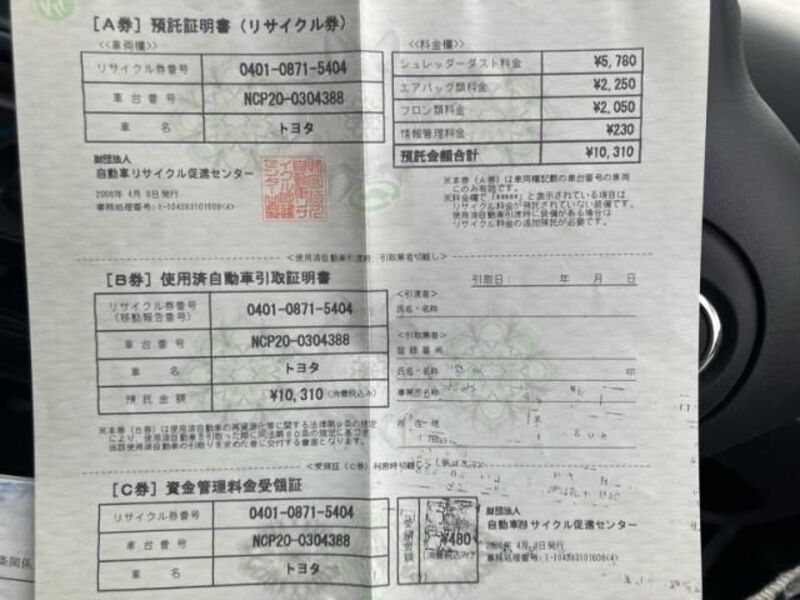 [A券] 預託証明書（リサイクル券）
<<車両欄>>
リサイクル券番号 0401-0871-5404
車台番号 NCP20-0304388
車名 トヨタ
財団法人
自動車リサイクル促進センター
発行
<<料金欄>>
シュレッダーダスト料金 ¥5,780
エアバッグ類料金 ¥2,250
フロン類料金 ¥2,050
情報管理料金 ¥230
預託金額合計 ¥10,310
※本券（A券）は車両欄記載の車台番号の車両
にのみ有効です。
※料金欄で「*****」と表示されている項目は
リサイクル料金が預託されていない装備です。
使用済自動車引渡時に装備がある場合は
リサイクル料金の追加預託が必要です。
<使用済自動車引渡時、引取業者切離し>
[B券] 使用済自動車引取証明書
引取日： 年 月 日
リサイクル券番号
(移動報告番号) 0401-0871-5404
車台番号 NCP20-0304388
車名 トヨタ
預託金額 ¥10,310(消費税込み)
<引渡者>
氏名・名称
<引取業者>
登録番号
氏名・名称 印
事業所名称
所在地
※本券（B券）は使用済自動車の再資源化等に関する法律第9条の規定
により、使用済自動車を引取った際に同法第80条の規定に基づき
当該使用済自動車の引取りを求めた者に交付する書面となります。
<受領証（C券）利用時切離し>
[C券] 資金管理料金受領証
リサイクル券番号 0401-0871-5404
車台番号 NCP20-0304388
車名 トヨタ
¥480
(消費税込み)
財団法人
自動車リサイクル促進センター
発行
条関係